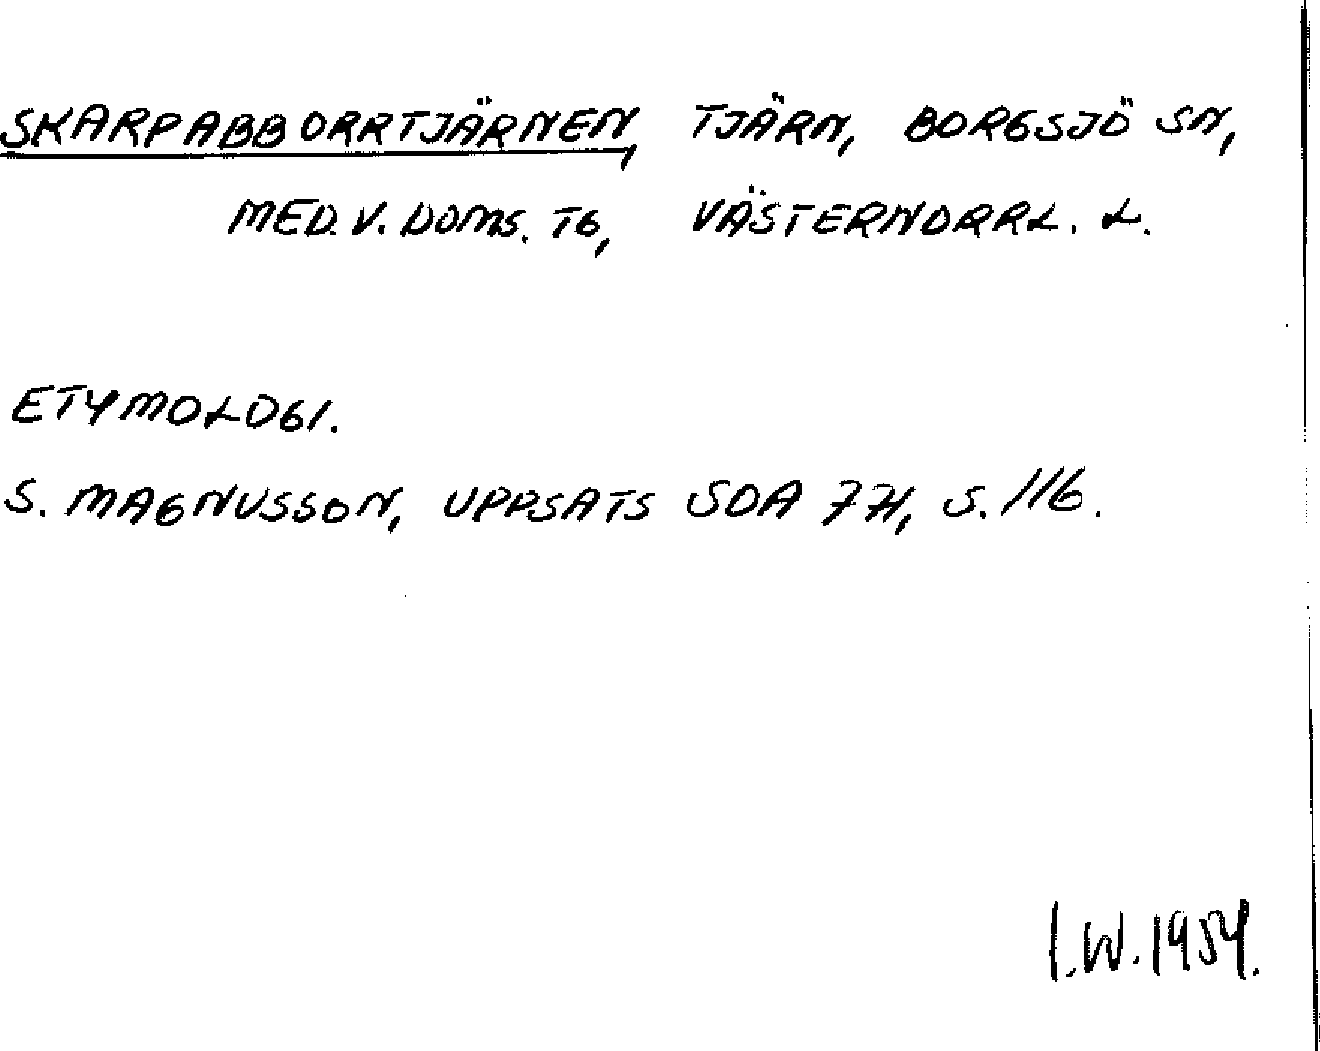 SKARPABBORRTJÄRNEN, TJÄRN, BORGSJÖ SN,
MED. V. DOMS. TG, VÄSTERNORRL. L.
ETYMOLOGI.
S. MAGNUSSON, UPPSATS SOA 771, S. 116.
I.W. 1954.